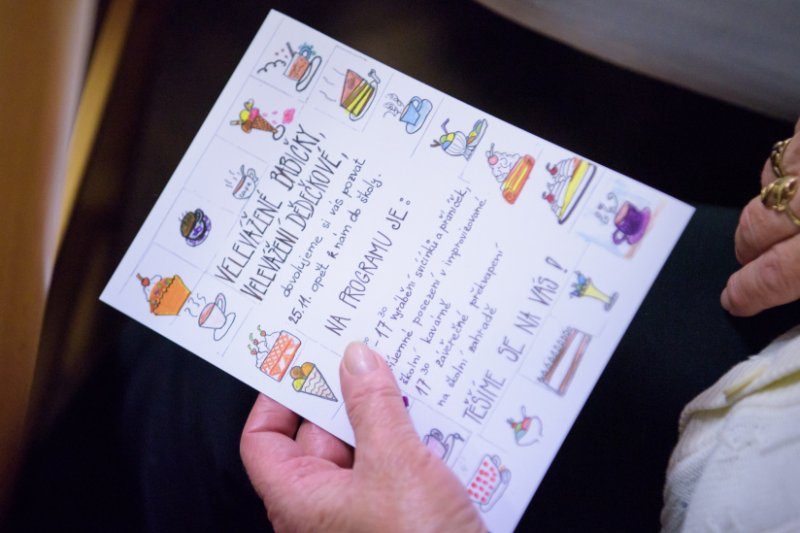 VELEVÁŽENÉ BABIČKY,
VELEVÁŽENÍ DĚDEČKOVÉ,
dovolujeme si vás pozvat
25.11. opět k nám do školy.
NA PROGRAMU JE:
17³⁰ vyrábění svícínků a přáníček,
příjemné posezení v improvizované
školní kavárně
17³⁰ závěrečné překvapení
na školní zahradě
TĚŠÍME SE NA VÁS!